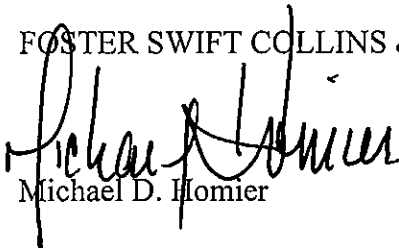 FOSTER SWIFT COLLINS
Michael Homier
Michael D. Homier